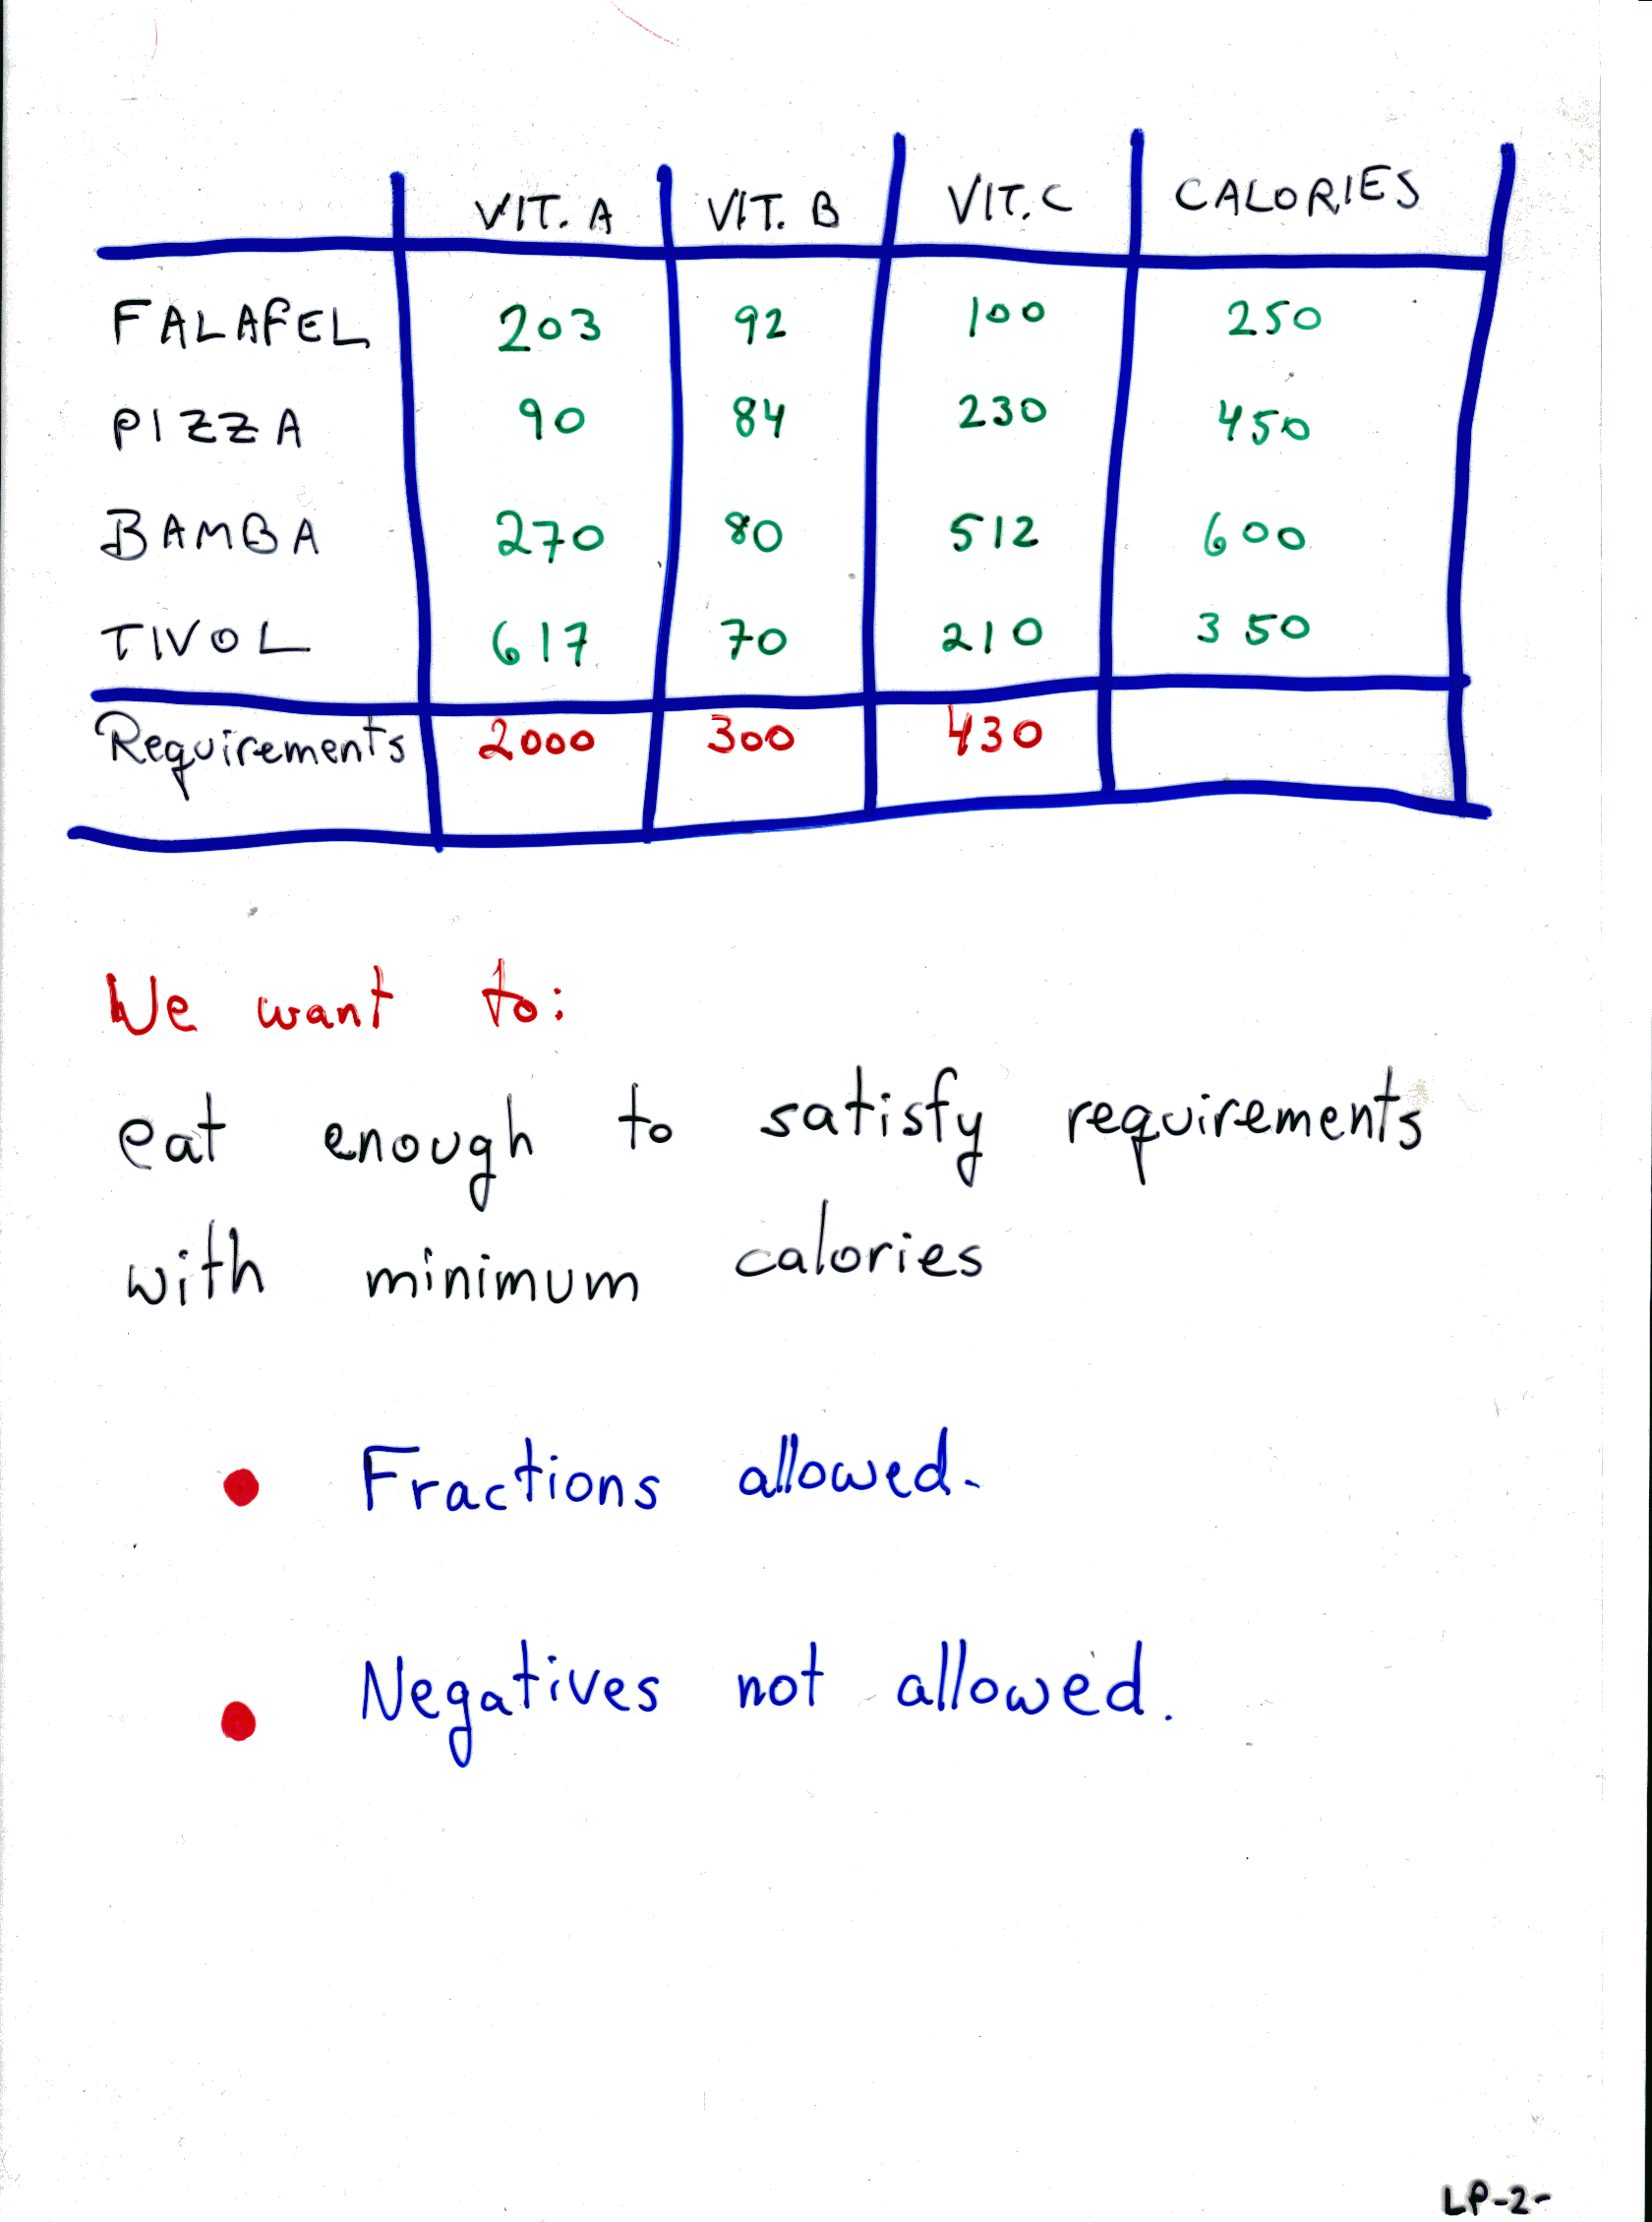 VIT. A VIT. B VIT. C CALORIES
FALAFEL 203 92 100 250
PIZZA 90 84 230 450
BAMBA 270 80 512 600
TIVOL 617 70 210 350
Requirements 2000 300 430
We want to:
eat enough to satisfy requirements
with minimum calories
Fractions allowed.
Negatives not allowed.
LP-2-